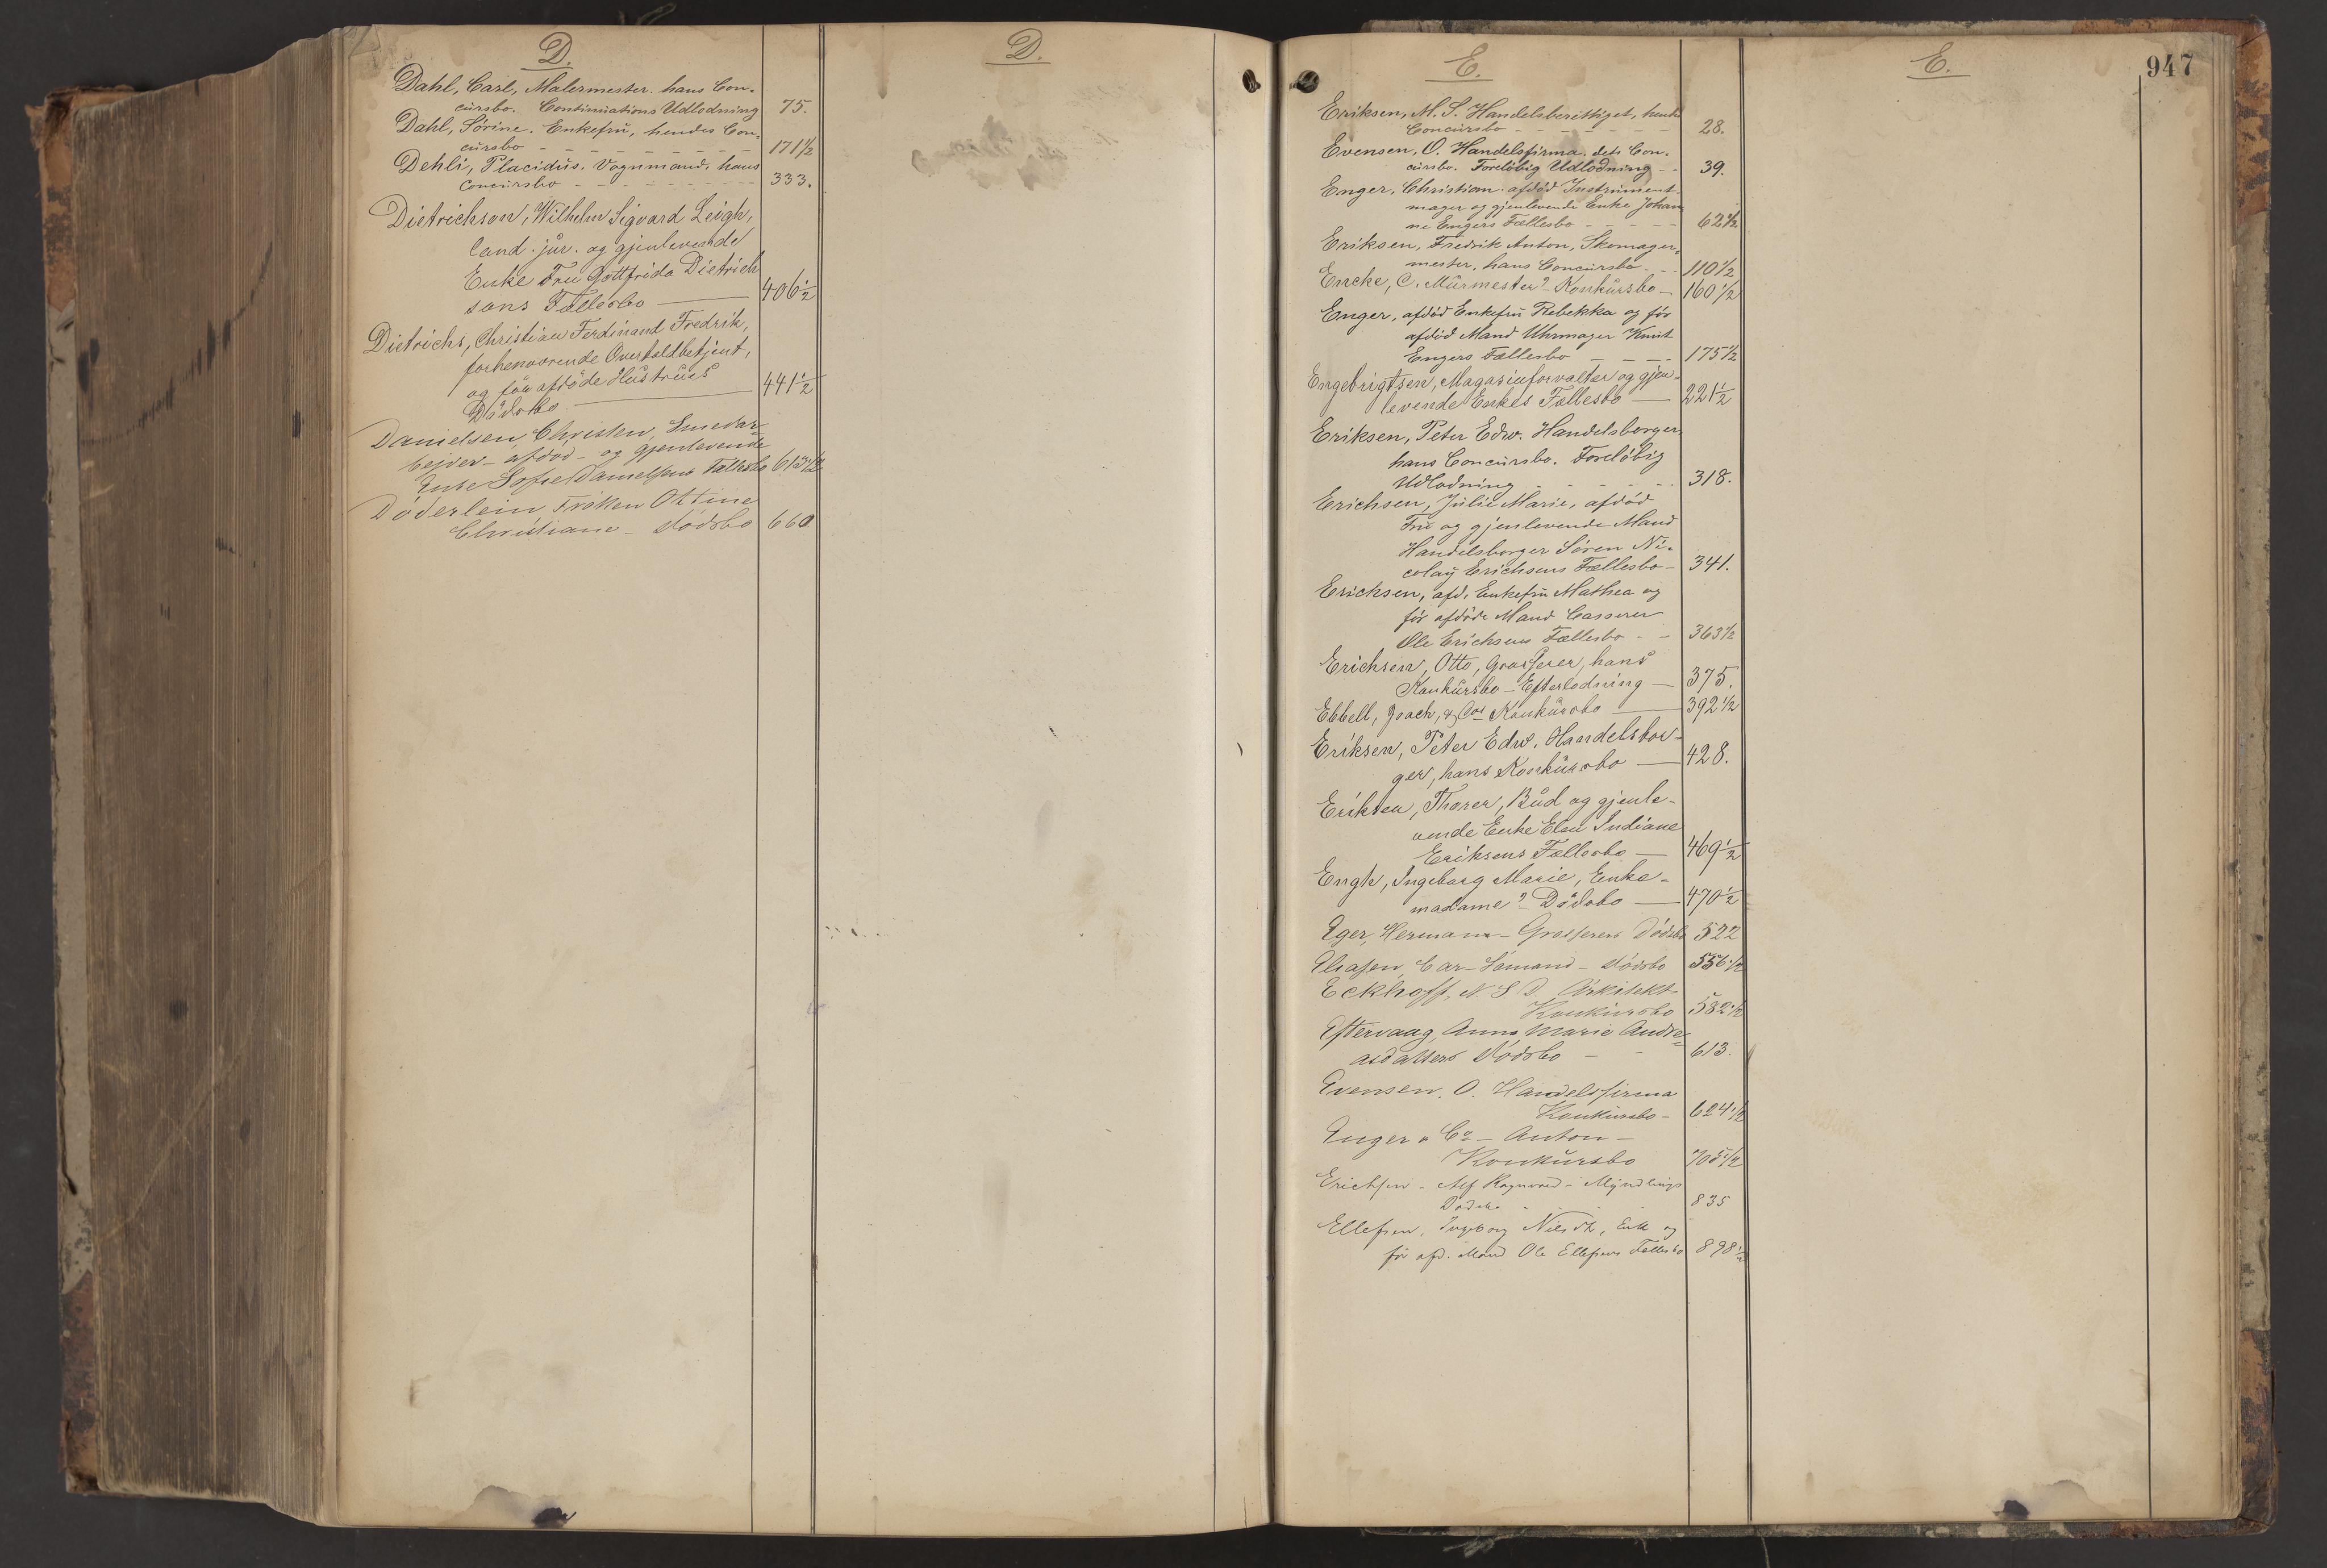 D.
Dahl, Carl, Malermester. hans Con-
cursbo. Continuations Udlodning 75.
Dahl, Sörine. Enkefru, hendes Con-
cursbo - - - - - - - 171 1/2
Dehli, Placidus. Vognmand, hans
Concursbo - - - - - - - 333.
Dietrichson, Wilhelm Sigvard Leigh,
Cand. jur. og gjenlevende
Enke Fru Gottfrida Dietrich
sons Fællesbo — 406 1/2
Dietrichs, Christian Ferdinand Fredrik,
forhenværende Overtoldbetjent,
og før afdöde Hustrues
Dödsbo — 441 1/2
Danielsen, Christen, Smedar-
bejder - afdöd - og gjenlevende
Enke Sofie Danielsens Fællesbo 613 1/2
Döderlein Fröken Ottine
Christiane - Dödsbo 660
D.
E.
Eriksen, M. S. Handelsberettiget, hendes
Concursbo - - - - - - 28.
Evensen, O. Handelsfirma. dets Con-
cursbo. Foreløbig Udlodning - - 39.
Enger, Christian. afdöd Instrument-
mager og gjenlevende Enke Johan
ne Engers Fællesbo - - - - - 62 1/2
Eriksen, Fredrik Anton, Skomager-
mester, hans Concursbo - - 110 1/2
Encke, C. Murmester's Konkursbo - 160 1/2
Enger, afdöd Enkefru Rebekka og för
afdöd Mand Uhrmager Knut
Engers Fællesbo - - - - 175 1/2
Engebrigtsen, Magasinforvalter og gjen-
levende Enkes Fællesbo — 221 1/2
Eriksen, Peter Edw. Handelsborger
hans Concursbo. Foreløbig
Udlodning - - - - - 318.
Erichsen, Julie Marie, afdöd
Fru og gjenlevende Mand
Handelsborger Sören Ni-
colay Erichsens Fællesbo - 341.
Erichsen, afd. Enkefru Mathea og
för afdöde Mand Casserer
Ole Erichsens Fællesbo - - 363 1/2
Erichsen, Otto, Grosserer, hans
Konkursbo - Efterlodning — 375.
Ebbell, Joach, & Cos Konkursbo — 392 1/2
Eriksen, Peter Edw. Handelsbor-
ger, hans Konkursbo — 428.
Eriksen, Thorer, Bud og gjenle-
vende Enke Elen Indiane
Eriksens Fællesbo — 469 1/2
Engh, Ingeborg Marie, Enke-
madame's Dödsbo — 470 1/2
Eger, Herman - Grosserers Dödsbo 522
Eliasen, Car - Sömand - Dödsbo 556 1/2
Eckhoff, N. S. D. Arkitekt
Konkursbo 582 1/2
Eftervaag, Anna Marie Andre-
asdatters Dödsbo - - 613.
Evensen, O. Handelsfirma
Konkursbo - 624 1/2
Enger & Co - Anton -
Konkursbo 705 1/2
Erichsen - Alf Ragnvald - Myndlings
Dödsbo - - - 835
Ellefsen, Ingeborg Nilsdt, Enke og
för afd. Mand Ole Ellefsens Fællesbo 898 1/2
E.
947